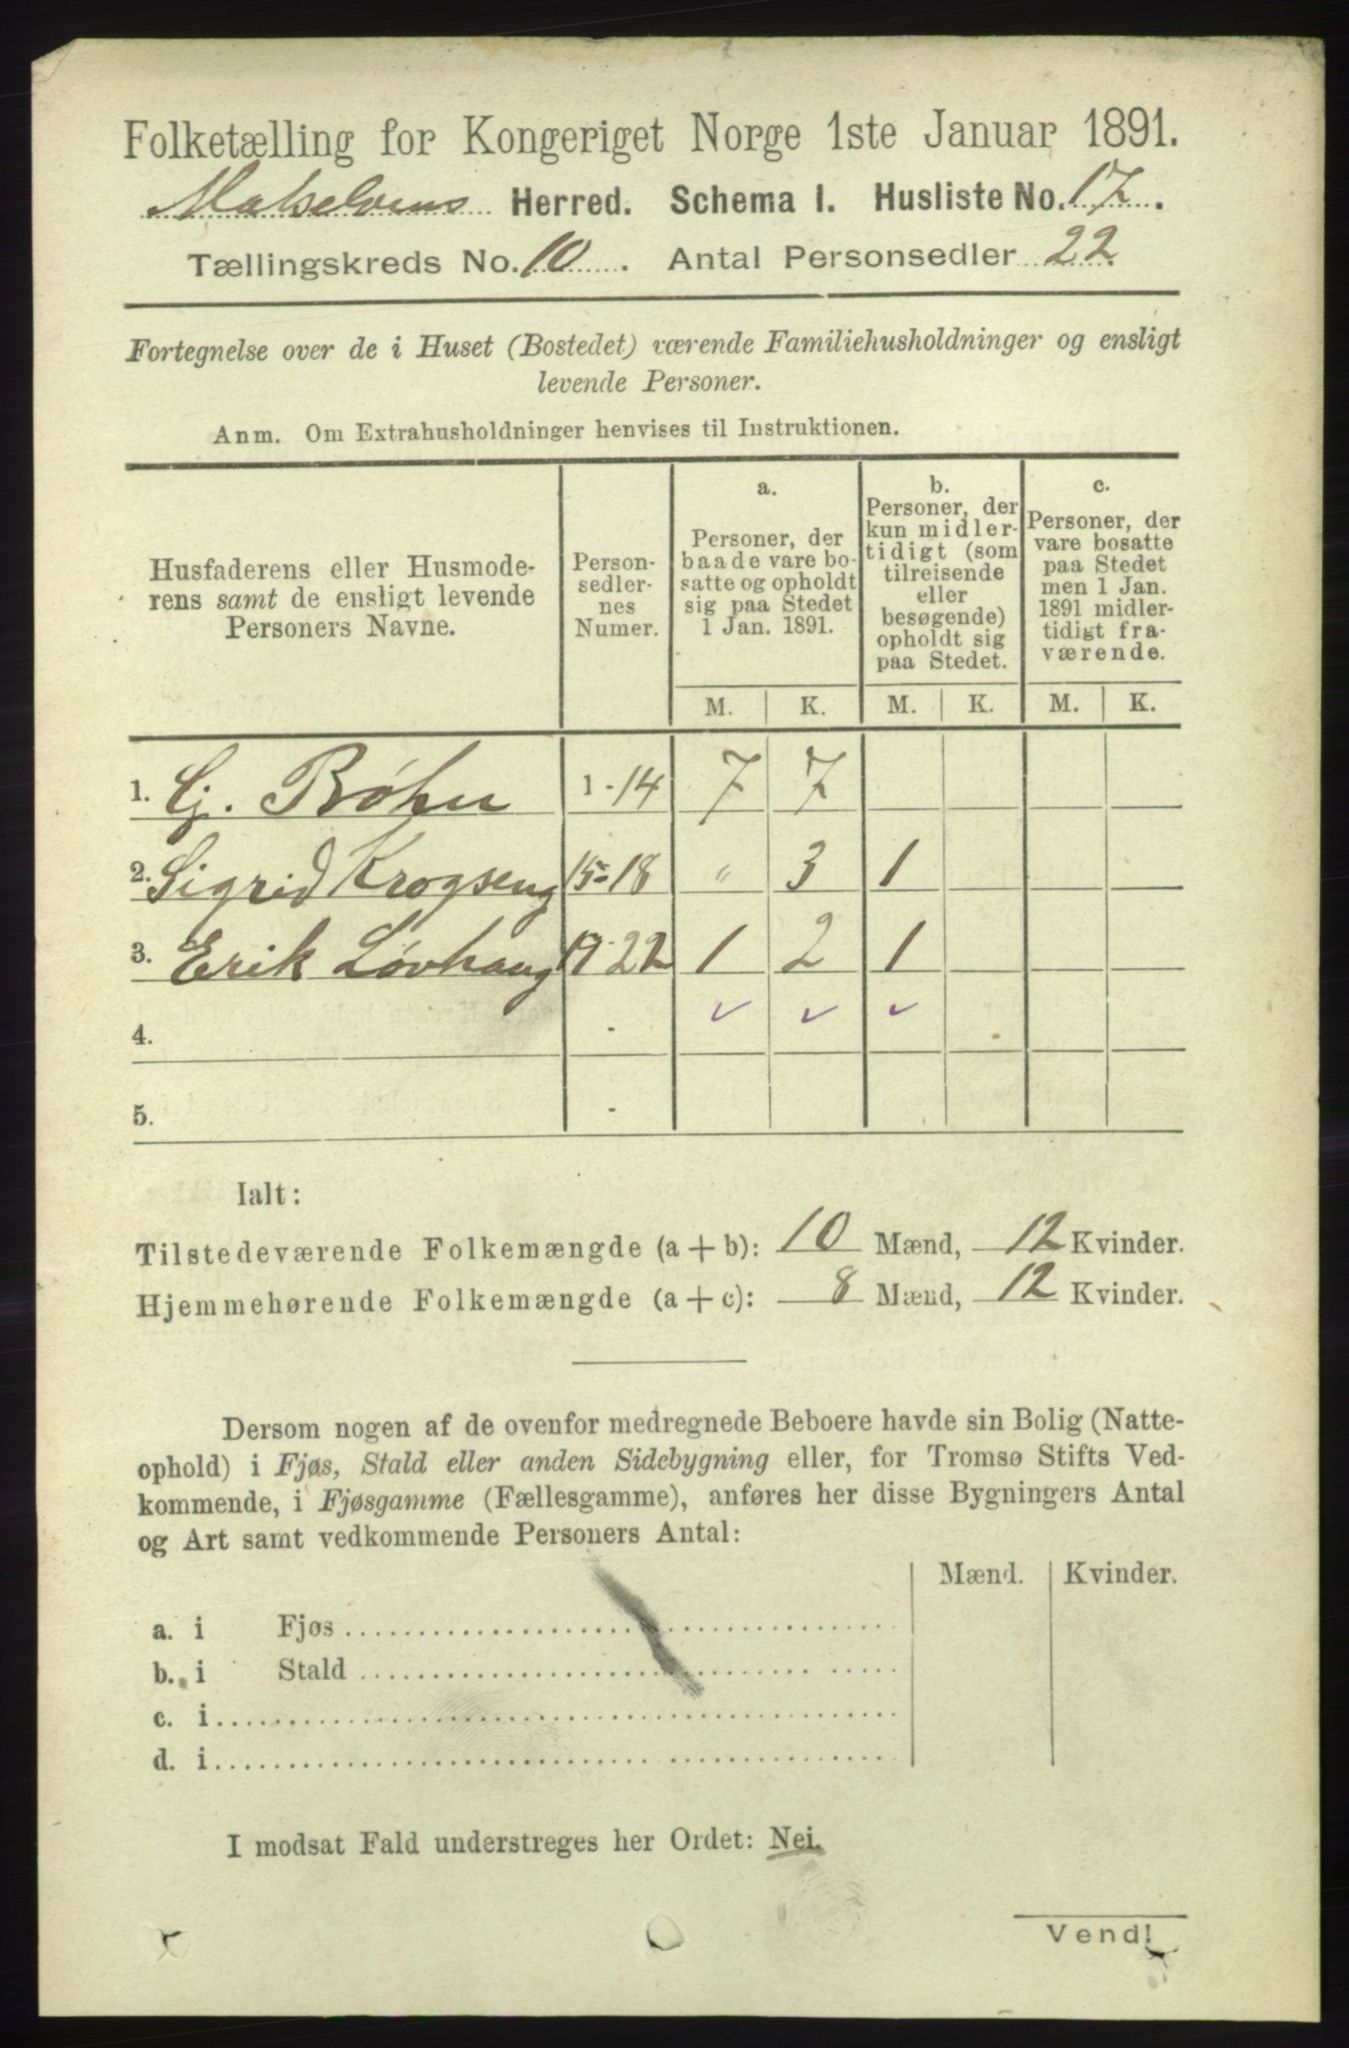 Folketælling for Kongeriget Norge 1ste Januar 1891.
Maalselvens Herred. Schema I. Husliste No. 17.
Tællingskreds No. 10. Antal Personsedler 22
Fortegnelse over de i Huset (Bostedet) værende Familiehusholdninger og ensligt
levende Personer.
Anm. Om Extrahusholdninger henvises til Instruktionen.
Husfaderens eller Husmode-
rens samt de ensligt levende
Personers Navne.
Person-
sedler-
nes
Numer.
a.
Personer, der
baade vare bo-
satte og opholdt
sig paa Stedet
1 Jan. 1891.
b.
Personer, der
kun midler-
tidigt (som
tilreisende
eller
besøgende)
opholdt sig
paa Stedet.
c.
Personer, der
vare bosatte
paa Stedet
men 1 Jan.
1891 midler-
tidigt fra-
værende.
M. K. M. K. M. K.
1. Bøhn 1-14 7 7
2. Sigrid Krogseng 15-18 " 3 1
3. Erik Løvhaug 19-22 1 2 1
4. - ✓ ✓ ✓
5. -
Ialt:
Tilstedeværende Folkemængde (a+b): 10 Mænd, 12 Kvinder.
Hjemmehørende Folkemængde (a+c): 8 Mænd, 12 Kvinder.
Dersom nogen af de ovenfor medregnede Beboere havde sin Bolig (Natte-
ophold) i Fjøs, Stald eller anden Sidebygning eller, for Tromsø Stifts Ved-
kommende, i Fjøsgamme (Fællesgamme), anføres her disse Bygningers Antal
og Art samt vedkommende Personers Antal:
Mænd. Kvinder.
a. i Fjøs
b. i Stald
c. i
d. i
I modsat Fald understreges her Ordet: Nei.
Vend!